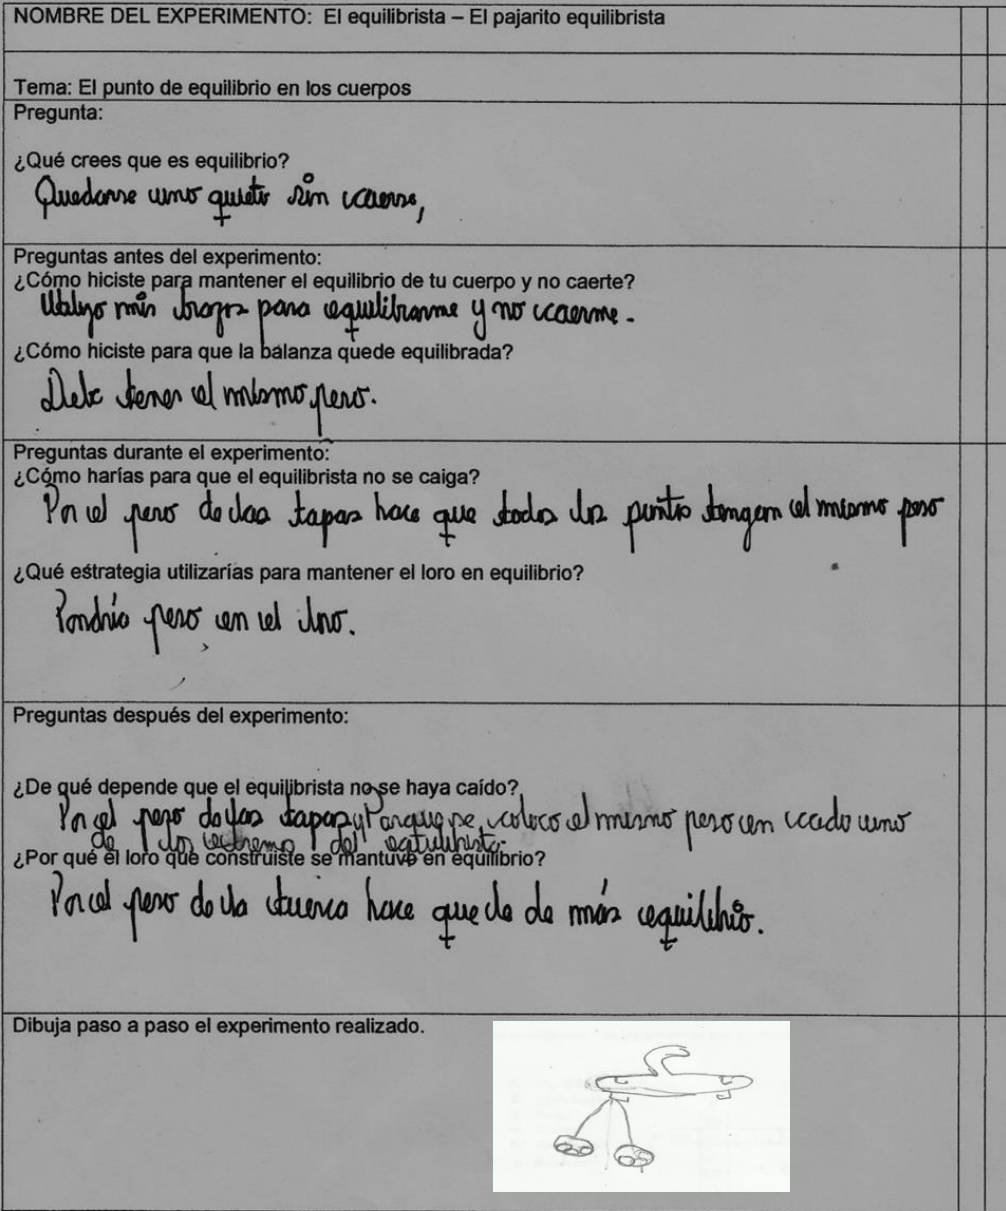 NOMBRE DEL EXPERIMENTO: El equilibrista – El pajarito equilibrista
Tema: El punto de equilibrio en los cuerpos
Pregunta:
¿Qué crees que es equilibrio?
Quedarse uno quieto sin caerse,
Preguntas antes del experimento:
¿Cómo hiciste para mantener el equilibrio de tu cuerpo y no caerte?
Utilizo mis brazos para equilibrarme y no caerme.
¿Cómo hiciste para que la balanza quede equilibrada?
Debe tener el mismo peso.
Preguntas durante el experimento:
¿Cómo harías para que el equilibrista no se caiga?
Por el peso de las tapas hace que todos los puntos tengan el mismo peso
¿Qué estrategia utilizarías para mantener el loro en equilibrio?
Pondría peso en el loro.
Preguntas después del experimento:
¿De qué depende que el equilibrista no se haya caído?
Por el peso de las tapas y Porque se coloco el mismo peso en cada uno
de los extremo del equilibrista.
¿Por qué el loro que construiste se mantuvo en equilibrio?
Por el peso de la tuerca hace que le de más equilibrio.
Dibuja paso a paso el experimento realizado.